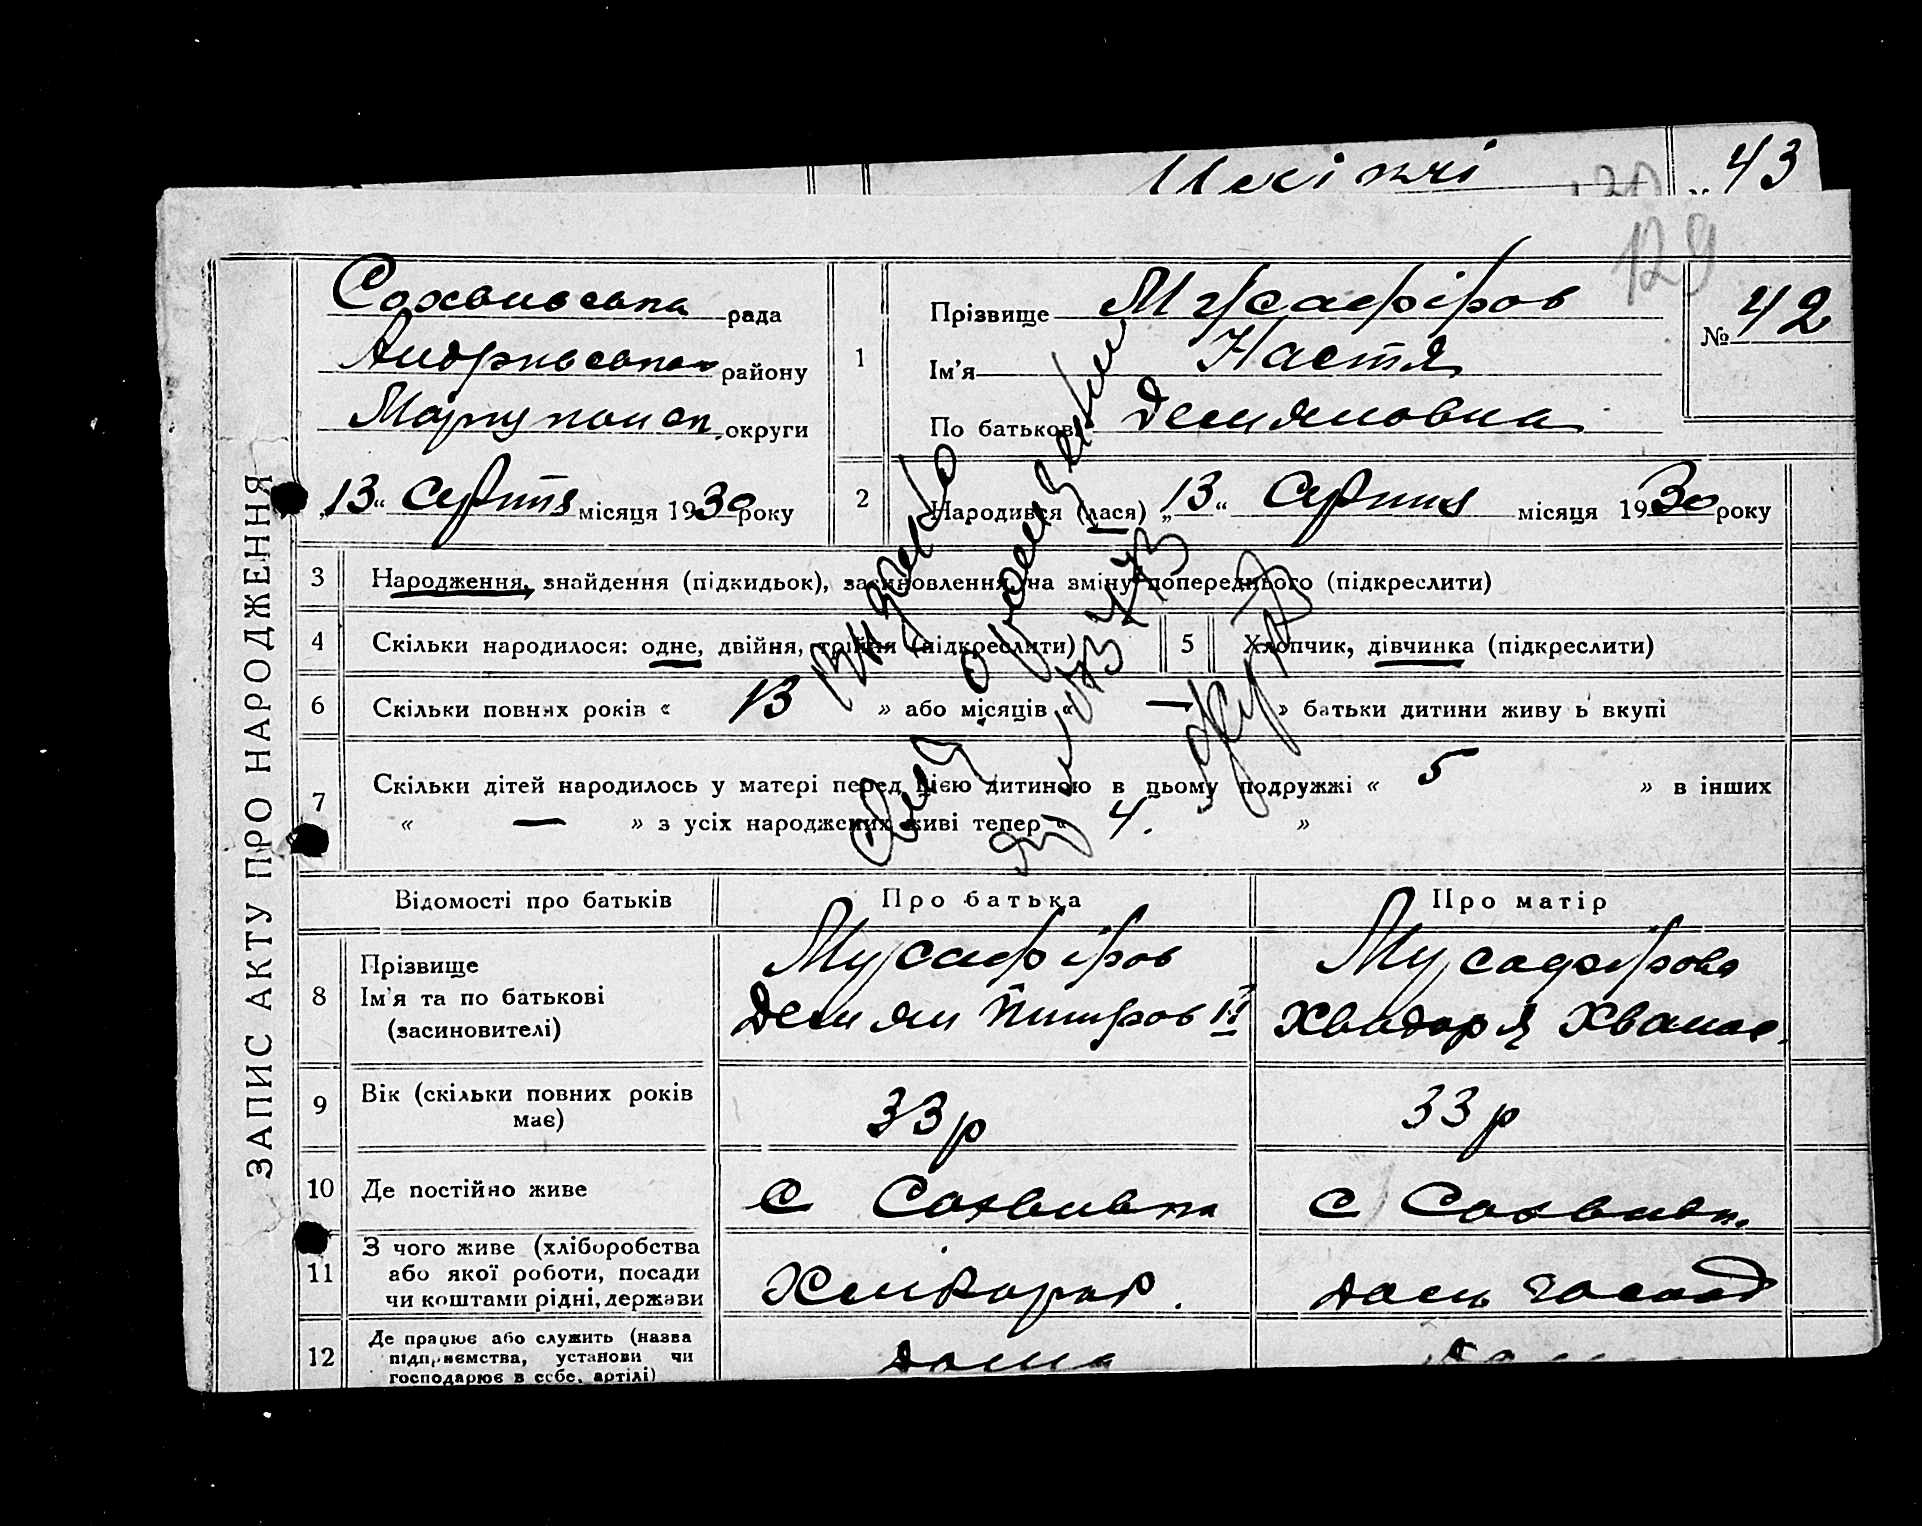 43
129
ЗАПИС АКТУ ПРО НАРОДЖЕННЯ
рада
району
округи
„13“ серпня місяця 1930 року
1
Прізвище Мусафіров
Ім'я Настя
По батькові Демяновна
№ 42
2 Народився (лася) „13“ серпня місяця 1930 року
3 Народження, знайдення (підкидьок), засиновлення, на зміну попереднього (підкреслити)
4 Скільки народилося: одне, двійня, трійня (підкреслити) 5 Хлопчик, дівчинка (підкреслити)
6 Скільки повних років « 13 » або місяців « — » батьки дитини живу ь вкупі
7 Скільки дітей народилось у матері перед цією дитиною в цьому подружжі « 5 » в інших
« — » з усіх народжених живі тепер « 4. »
Видано
Відомості про батьків Про батька Про матір
8 Прізвище Мусафіров Мусафірова
Ім'я та по батькові Демян
(засиновителі)
9 Вік (скільки повних років має) 33 р 33 р
10 Де постійно живе с с
11 З чого живе (хліборобства
або якої роботи, посади
чи коштами рідні, держави Хлібороб. дом. господ
12 Де працює або служить (назва
підприємства, установи чи
господарює в себе, артілі) дома